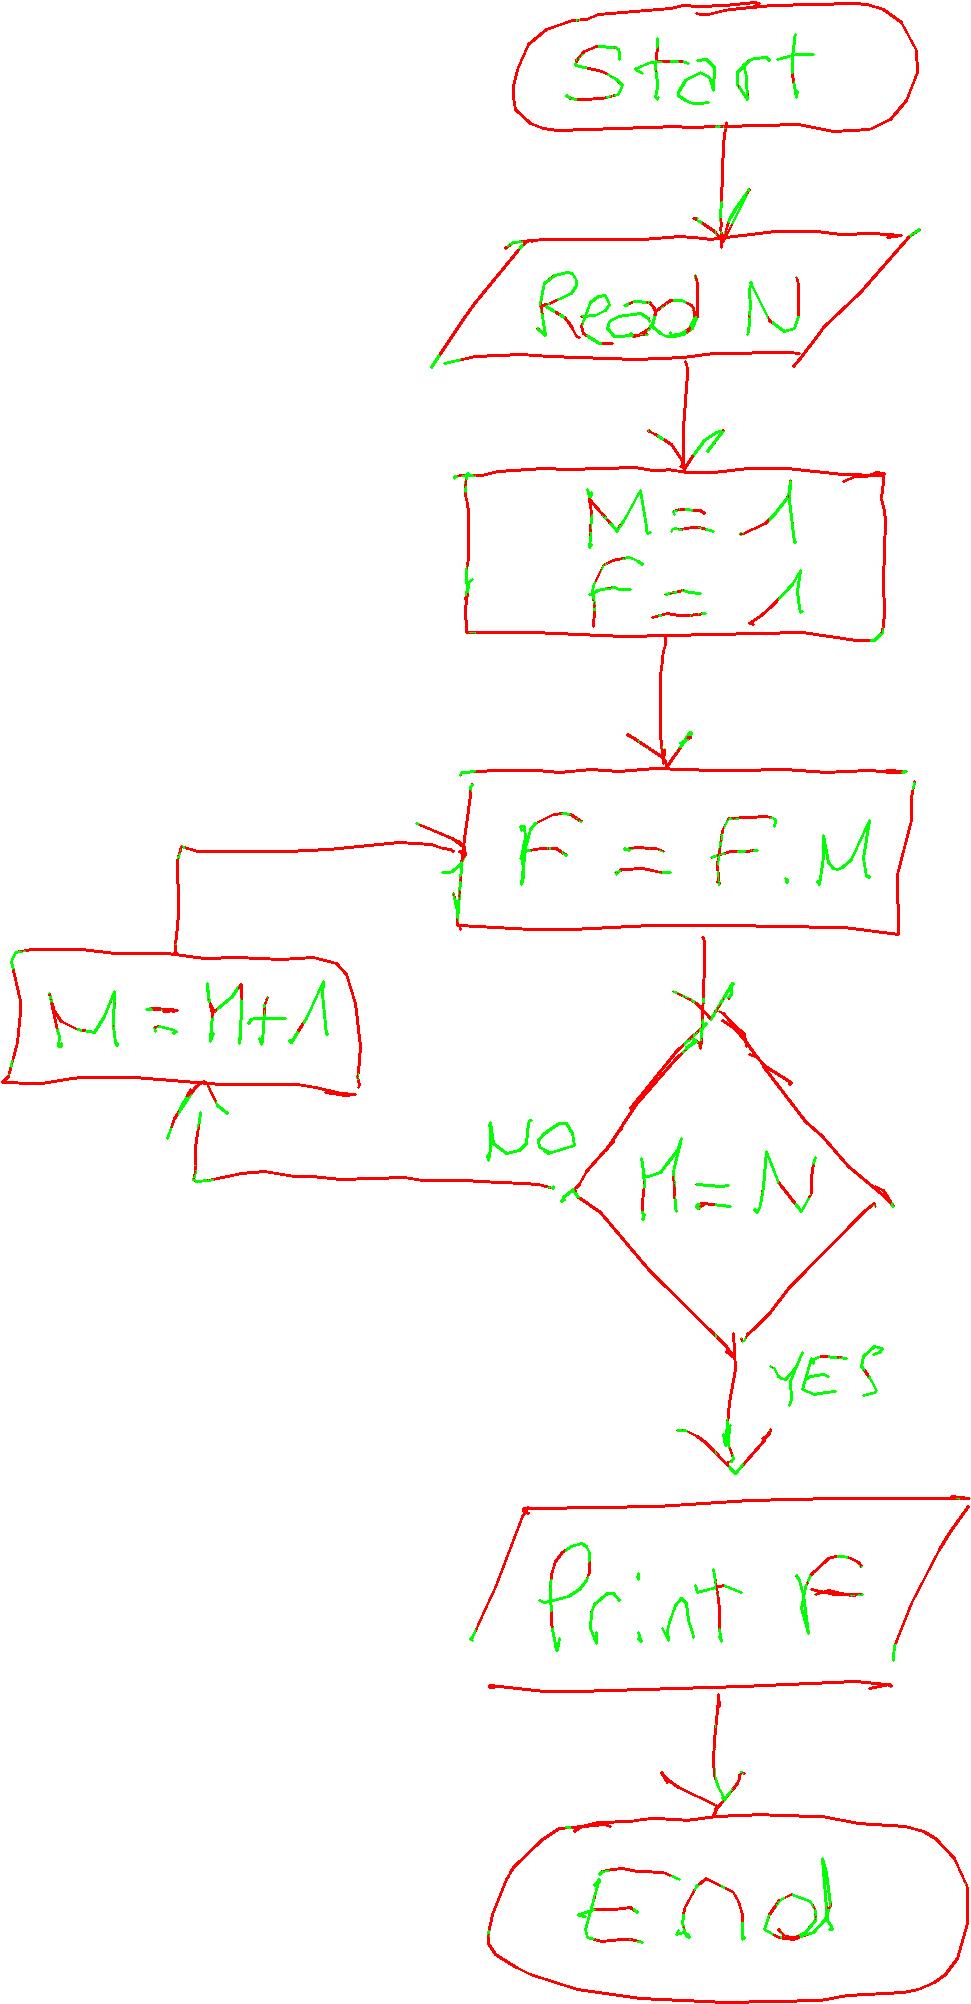 Start
Read N
M = 1
F = 1
F = F . M
M = M + 1
NO
M = N
YES
Print F
End